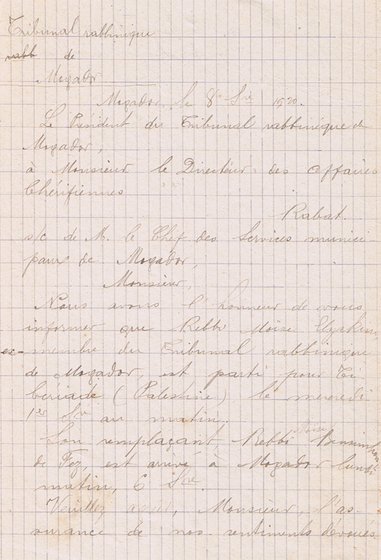 Tribunal rabbinique
rabb de
Mogador
Mogador, le 8 Sre 1920.
Le Président du Tribunal rabbinique de
Mogador,
à Monsieur le Directeur des Affaires
Chérifiennes
Rabat
s/c de M. le Chef des Services munici-
paux de Mogador,
Monsieur,
Nous avons l'honneur de vous
informer que Rebbi Moïse Elyakim
ex-membre du Tribunal rabbinique
de Mogador, est parti pour Ti
bériade (Palestine) le mercredi
1er Sre au matin.
Son remplaçant, Rebbi Moïse
de Fez, est arrivé à Mogador lundi
matin, 6 Sre.
Veuillez agréer, Monsieur, l'as
surance de nos sentiments dévoués